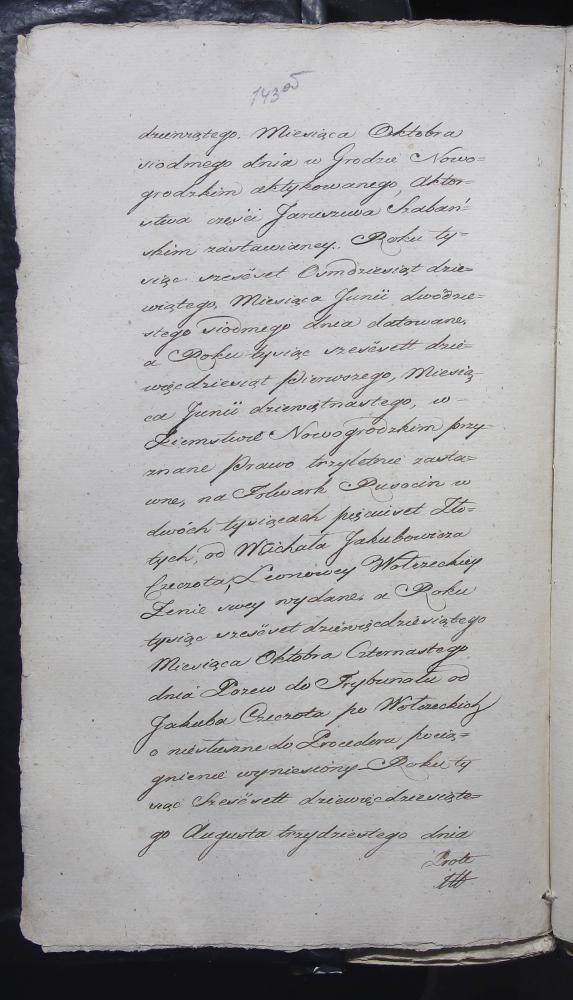 143 об
dziewiątego, Miesiąca Oktobra
siodmego dnia w Grodzie Nowo=
grodzkim aktykowanego, Aktor=
stwa części Jaruszuwa Szabań=
skim zastawianey. Roku ty=
siąc szesćset Osmdziesiąt dzie=
wiątego, Miesiąca Junii dwódzie=
stego siodmego dnia datowane,
a Roku tysiąc szesćsett dzie=
więcdziesiąt Pierwszego, Miesią=
ca Junii dziewiętnastego, w=
Ziemstwie Nowogrodzkim przy=
znane Prawo trzyletnie zasta=
wne, na Folwark Rusocin w
dwóch tysiącach pięciuset Zło=
tych, od Michała Jakubowicza
Czeczota, Leonowey Wołrzeckiey
Żenie swey wydane, a Roku
tysiąc szesćset dziewięcdziesiątego
Miesiąca Oktobra Czternastego
dnia Pozew do Trybunału od
Jakuba Czeczota po Wołrzeckich
o niesłuszne do Procederu pocią=
gnienie wyniesiony Roku ty
siąc Szesćsett dziewięcdziesiąte=
go Augusta trzydziestego dnia
Prote